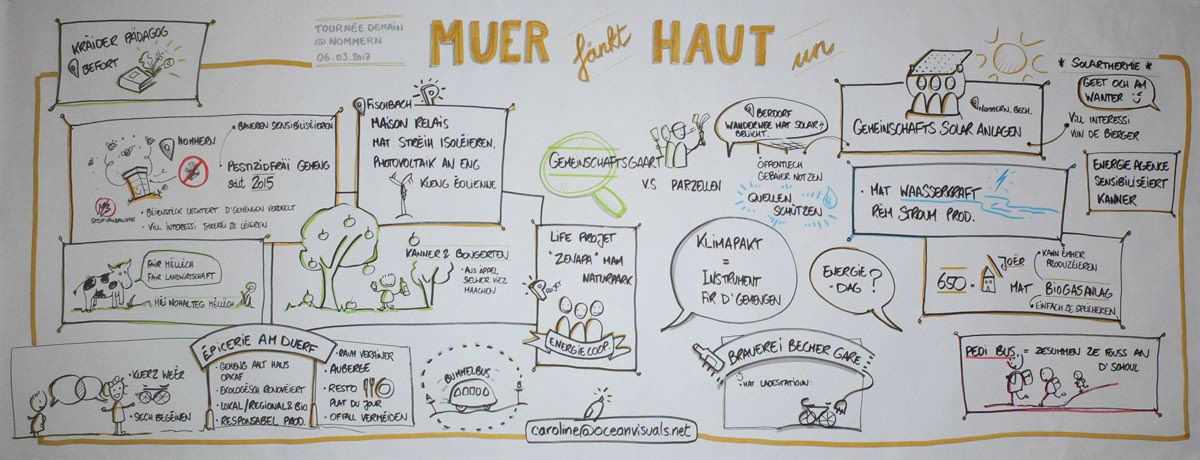 TOURNÉE DEMAIN
@ NOMMERN
06.03.2017
MUER fänkt HAUT un
KRÄIDER PÄDAGOG
BEFORT
NOMMERN
• BAUEREN SENSIBILISÉIEREN
PESTIZIDFRÄI GEMENG
säit 2015
• BEIENSTÉCK LEChTERT D'GEMENGEN VERDEELT
• VILL INTERESSI IMKEREI ZE LÉIEREN
FAIR MËLLECH
FAIR LANDWIRTSCHAFT
MÉI NOHALTEG MËLLECH
FISCHBACH
MAISON RELAIS
MAT STRÉIH ISOLÉIEREN,
PHOTOVOLTAIK AN ENG
KLENG ÉOLIENNE
KANNER & BONGERTEN
• AUS ÄPPEL
SELWER VIEZ
MAACHEN
GEMEINSCHAFTSGAART
V.S PARZELLEN
BERDORF
WANDERWEE MAT SOLAR
BELIICHT.
ÖFFENTLECH
GEBAIER NOTZEN
QUELLEN
SCHÜTZEN
NOMMERN, BECH,
GEMEINSCHAFTS SOLAR ANLAGEN
* SOLARTHERMIE *
GEET OCH AM
WANTER
VILL INTERESSI
VUN DE BIERGER
ENERGIE AGENCE
SENSIBILISÉIERT
KANNER
• MAT WAASSERKRAFT
RËM STROUM PROD.
LIFE PROJET
"ZENAPA" MAM
NATURPARK
ENERGIE COOP.
KLIMAPAKT
=
INSTRUMENT
FIR D'GEMENGEN
ENERGIE
-DAG?
650 • JOER
MAT BIOGASANLAG
• KANN ËMMER
PRODUZÉIEREN
• EINFACH ZE SPÄICHEREN
• KUERZ WEËR
• SECH BEGÉINEN
ÉPICERIE AM DUERF
• GEMENG ALT HAUS
OPKAF
• EKOLOGESCH RENOVÉIERT
• LOKAL/REGIONAL & BIO
• RESPONSABEL PROD.
• RAIM VERÄINER
• AUBERGE
• RESTO
PLAT DU JOUR
• OFFALL VERMEIDEN
BUMMELBUS
A
B
BRAUEREI BECHER GARE
MAT LADESTATIOUN:
PEDI BUS = ZESUMMEN ZE FOUSS AN
D'SCHOUL
caroline@oceanvisuals.net